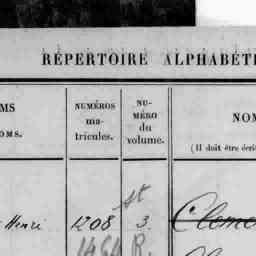 RÉPERTOIRE ALPHABÉT
MS
OMS.
NUMÉROS
ma-
tricules.
NU-
MÉRO
du
volume.
NOM
(Il doit être écri
st
Henri 1208 3.
1464 R.